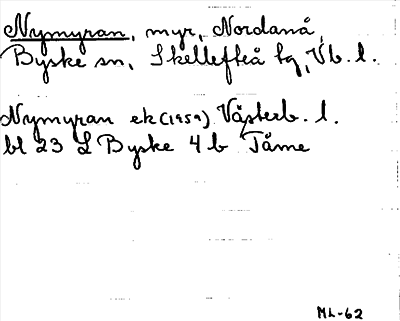 Nymyran, myr, Nordanå,
Byske sn, Skellefteå tg, Vb. l.
Nymyran ek (1959) Västerb. l.
bl 23 L Byske 4 b Tåme
ML-62